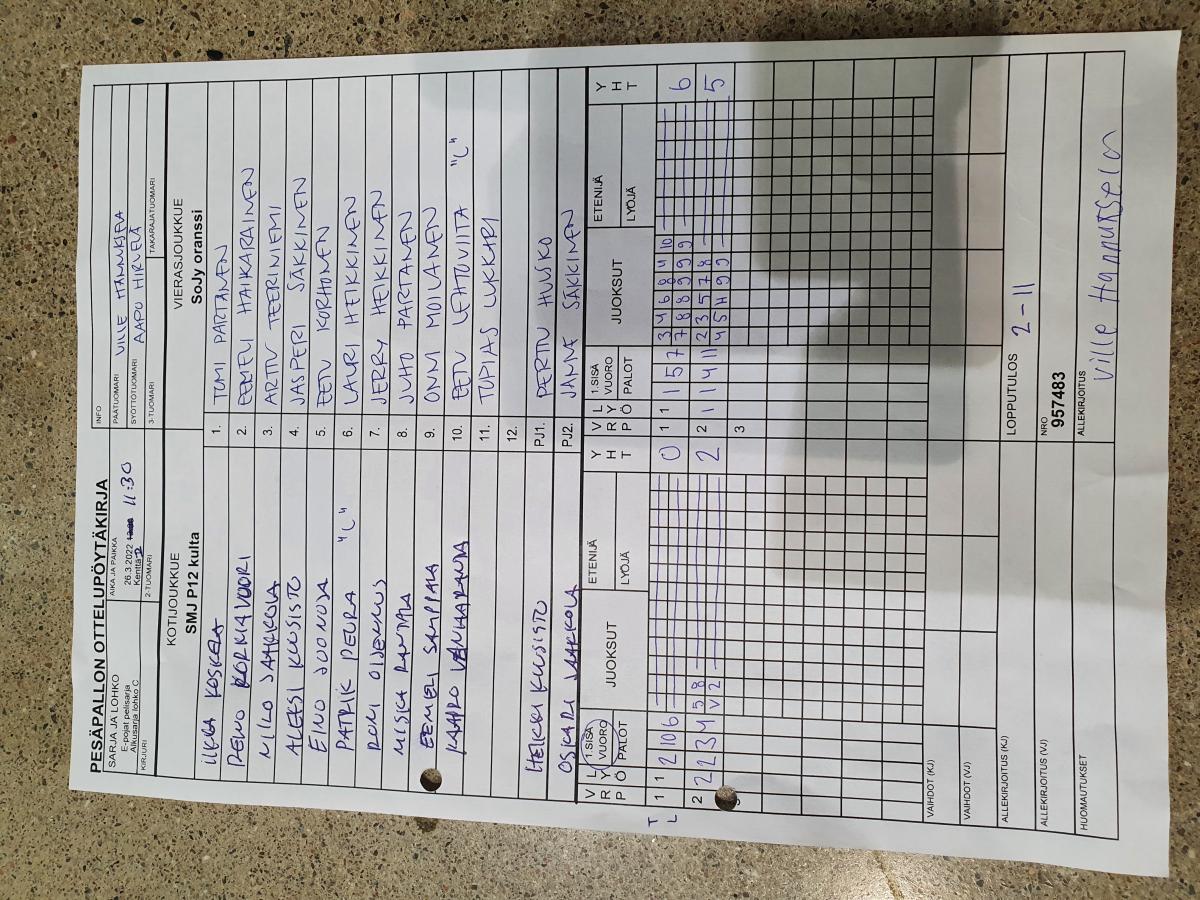 PESÄPALLON OTTELUPÖYTÄKIRJA
SARJA JA LOHKO
E-pojat pelisarja
Alkusarja lohko C
AIKA JA PAIKKA
26.3.2022 11:30
Kenttä
INFO
PÄÄTUOMARI VILLE HANNUKSELA
SYÖTTÖTUOMARI AAPO HIRVELÄ
KIRJURI
2-TUOMARI
3-TUOMARI
TAKARAJATUOMARI
KOTIJOUKKUE
SMJ P12 kulta
VIERASJOUKKUE
SoJy oranssi
ILKKA KOSKELA 1. TOMI PARTANEN
PEINO KORKIAVUORI 2. EEMELI HAIKARAINEN
NIILO JAAKKOLA 3. ARTTU TEERINIEMI
ALEKSI KUUSISTO 4. JASPERI SÄKKINEN
EINO JUONOJA 5. EETU KORHONEN
PATRIK PEURA "L" 6. LAURI HEIKKINEN
RONI 7. JERRY HEIKKINEN
MISKA RANTALA 8. JUHO PARTANEN
EEMELI SAMPPALA 9. ONNI MOILANEN
KAAPO 10. EETU LEHTOVIITA "L"
11. TOPIAS LUKKARI
12.
HEIKKI KUUSISTO PJ1. PERTTU HUUSKO
OSKARI JAAKKOLA PJ2. JANNE SÄKKINEN
V R P L Y Ö 1.SISÄ VUORO PALOT JUOKSUT ETENIJÄ LYÖJÄ Y H T V R P L Y Ö 1.SISÄ VUORO PALOT JUOKSUT ETENIJÄ LYÖJÄ Y H T
T L
1 1 2 10 6 0 1 1 1 5 7 3 4 6 8 4 10 6
7 8 8 9 9 9
2 2 2 3 4 5 8 2 2 1 1 4 11 2 3 5 7 8 5
V 2 4 5 H 9 9
3
VAIHDOT (KJ)
VAIHDOT (VJ)
ALLEKIRJOITUS (KJ)
LOPPUTULOS 2-11
ALLEKIRJOITUS (VJ)
NRO
957483
HUOMAUTUKSET
ALLEKIRJOITUS
Ville Hannuksela